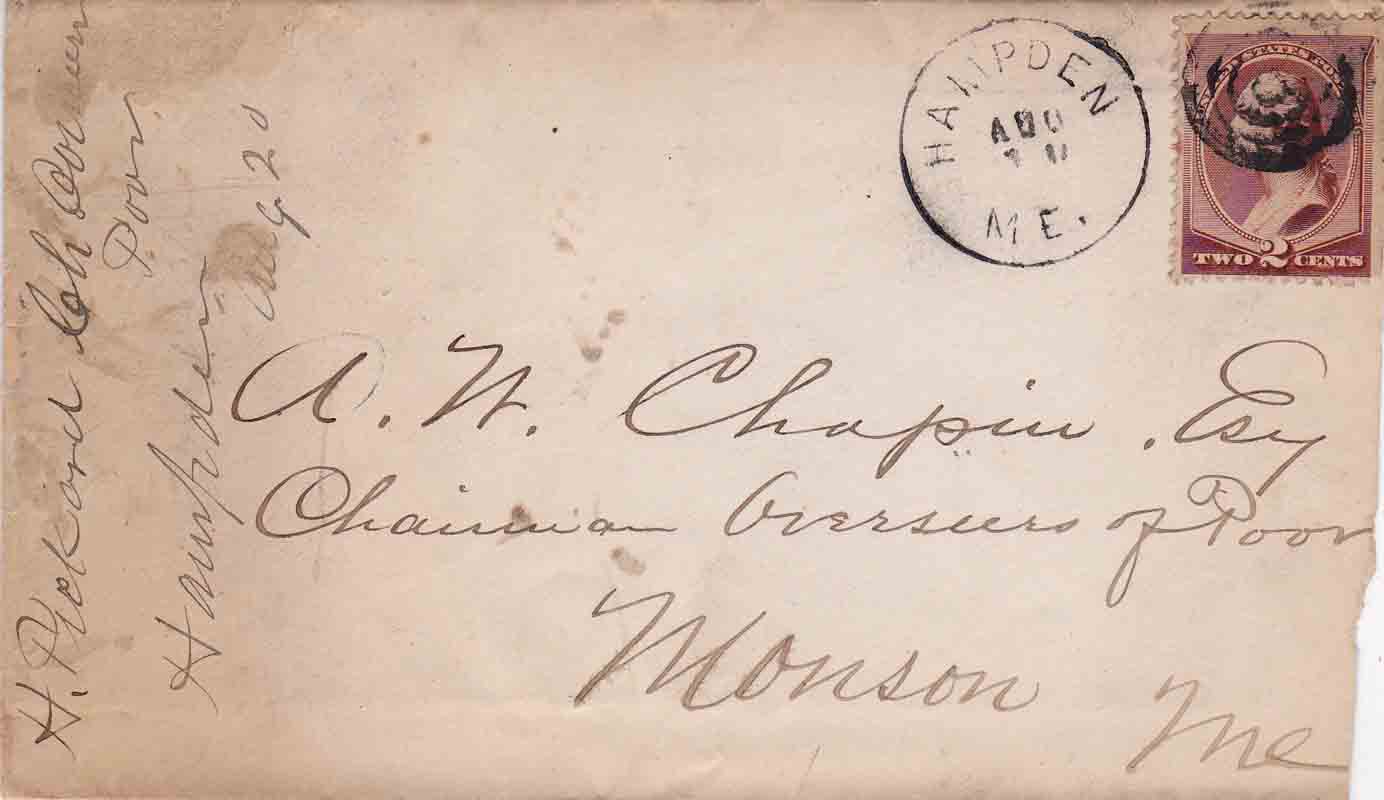 HAMPDEN
AUG
ME.
UNITED STATES POSTAGE
TWO 2 CENTS
A. W. Chapin, Esq
Chairman Overseers of Poor
Monson Me
H. Pickard Ch
Poor
Hampden
Aug 20